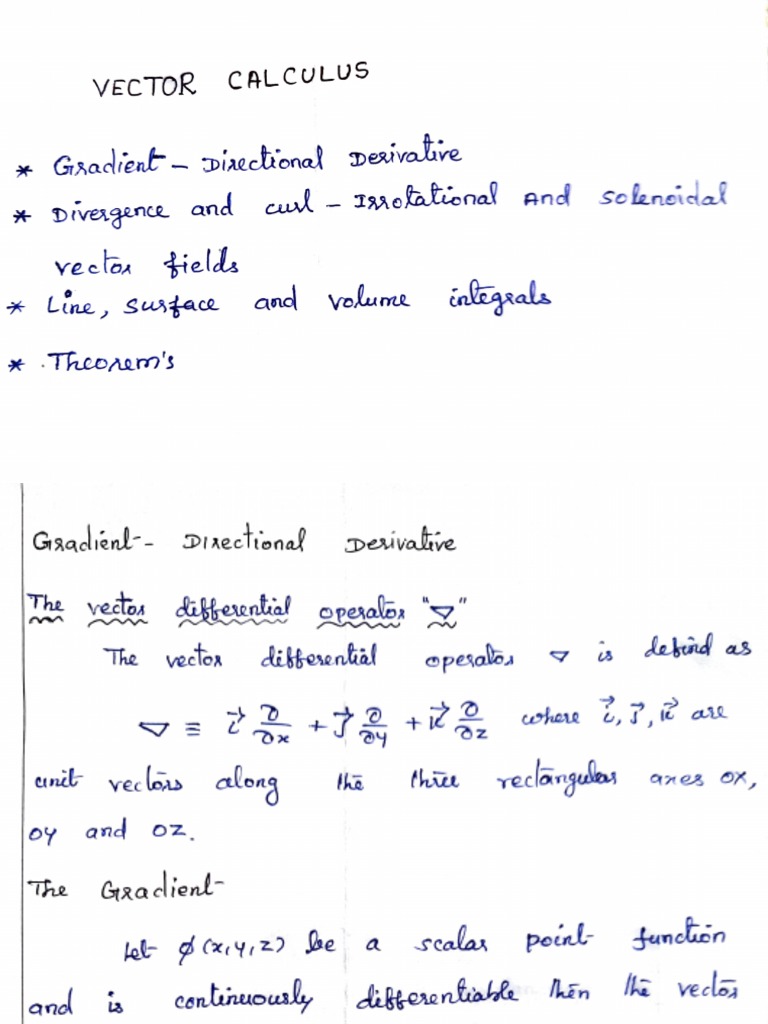 VECTOR CALCULUS
* Gradient - Directional Derivative
* Divergence and curl - Irrotational And solenoidal
vector fields
* Line, surface and volume integrals
* Theorem's
Gradient - Directional Derivative
The vector differential operator "∇"
The vector differential operator ∇ is defind as
∇ ≡ i⃗ ∂/∂x + j⃗ ∂/∂y + k⃗ ∂/∂z where i⃗, j⃗, k⃗ are
unit vectors along the three rectangular axes ox,
oy and oz.
The Gradient
Let φ(x,y,z) be a scalar point function
and is continuously differentiable then the vector